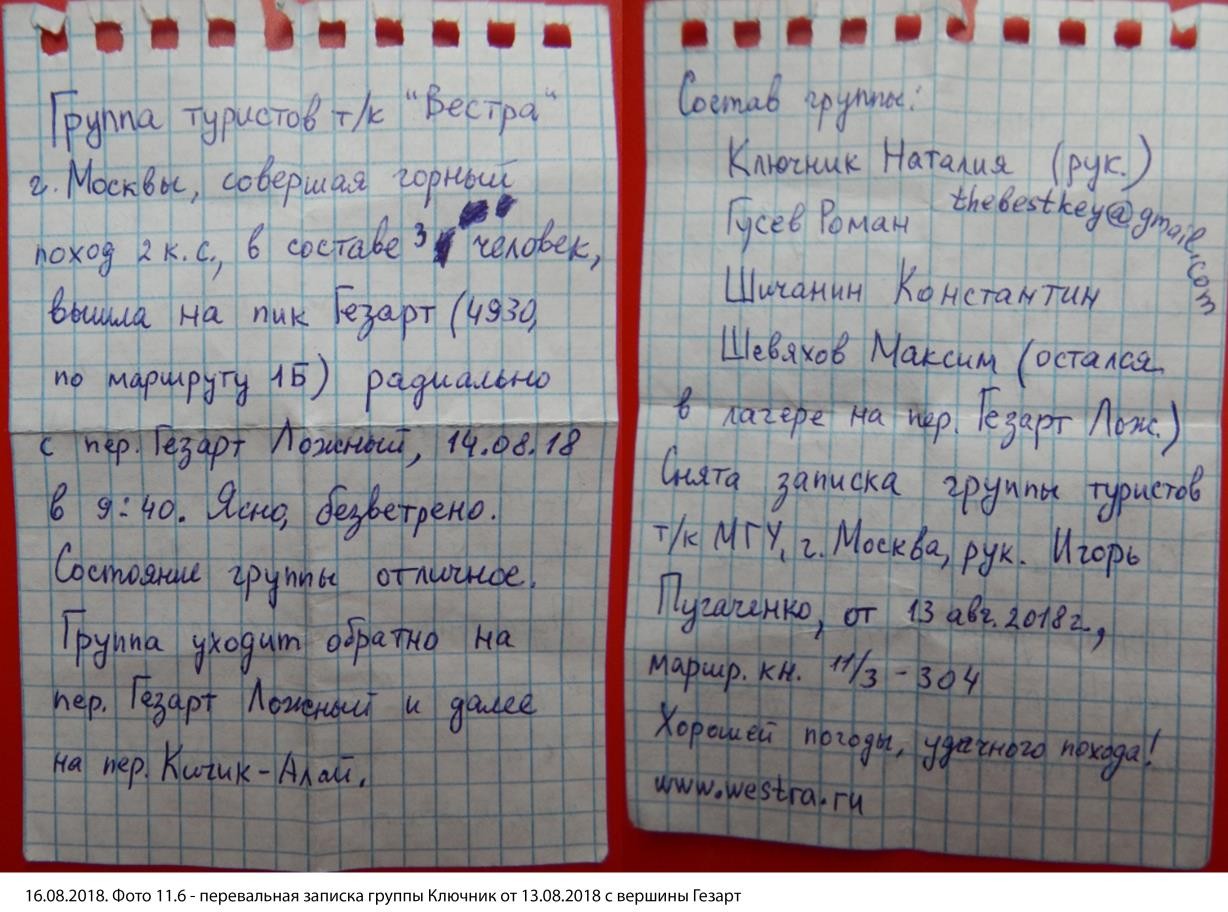 Группа туристов т/к "Вестра"
г. Москвы, совершая горный
поход 2 к.с., в составе 3 человек,
вышла на пик Гезарт (4930,
по маршруту 1Б) радиально
с пер. Гезарт Ложный, 14.08.18
в 9:40. Ясно, безветрено.
Состояние группы отличное.
Группа уходит обратно на
пер. Гезарт Ложный и далее
на пер. Кичик-Алай.
Состав группы:
Ключник Наталия (рук.)
thebestkey@gmail.com
Гусев Роман
Шичанин Константин
Шевяхов Максим (остался
в лагере на пер. Гезарт Лож.)
Снята записка группы туристов
т/к МГУ, г. Москва, рук. Игорь
Пугаченко, от 13 авг. 2018г.,
маршр. кн. 11/3 - 304
Хорошей погоды, удачного похода!
www.westra.ru
16.08.2018. Фото 11.6 - перевальная записка группы Ключник от 13.08.2018 с вершины Гезарт